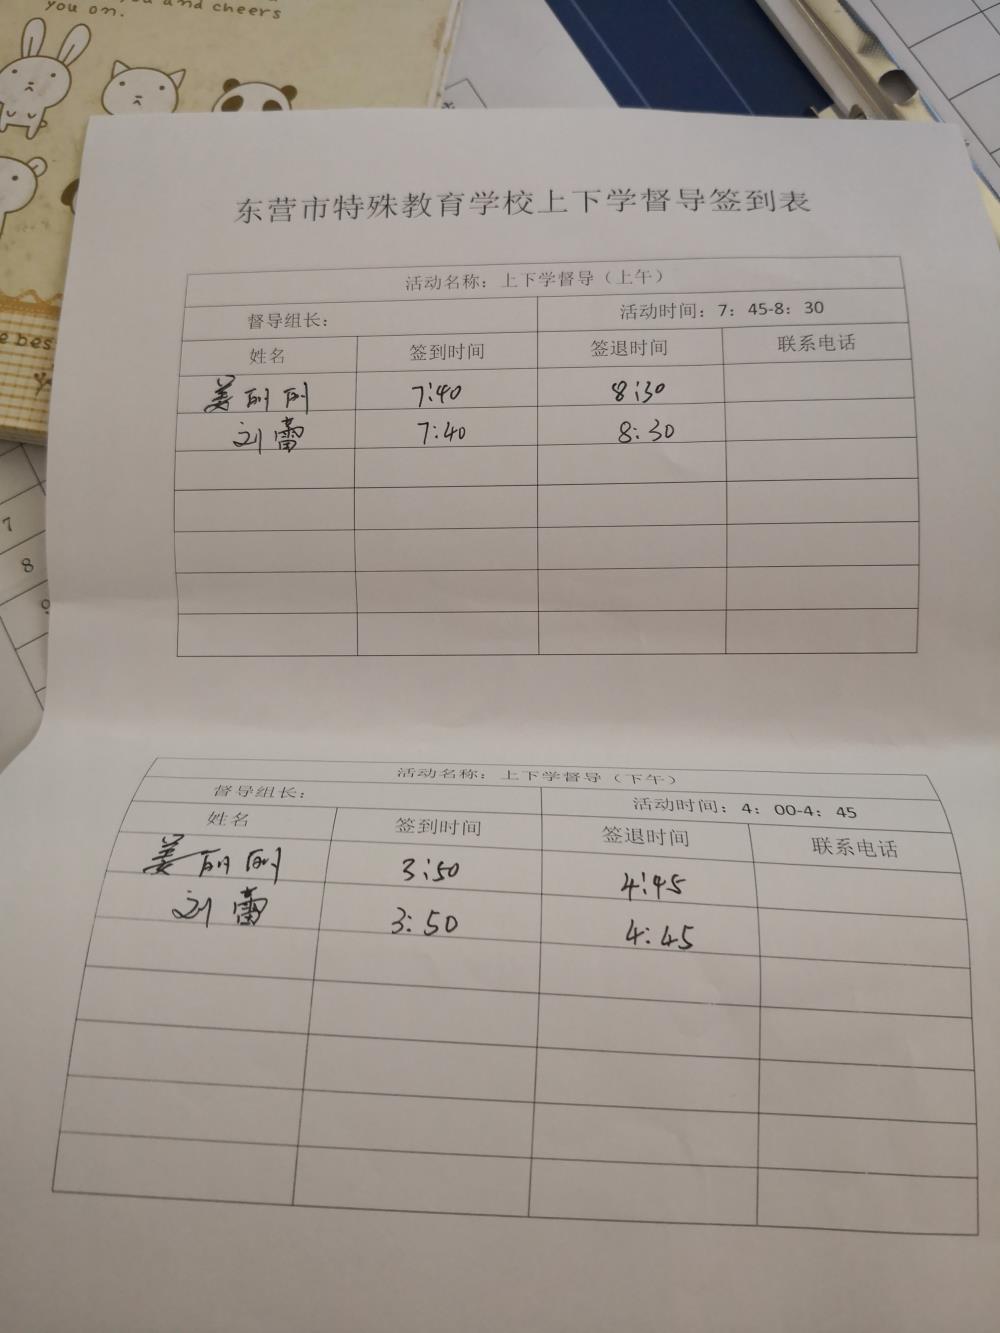 you and cheers
you on.
东营市特殊教育学校上下学督导签到表
活动名称：上下学督导（上午）
督导组长： 活动时间：7：45-8：30
姓名 签到时间 签退时间 联系电话
姜丽刚 7:40 8:30
刘蕾 7:40 8:30
e bes
7
8
9
活动名称：上下学督导（下午）
督导组长： 活动时间：4：00-4：45
姓名 签到时间 签退时间 联系电话
姜丽刚 3:50 4:45
刘蕾 3:50 4:45